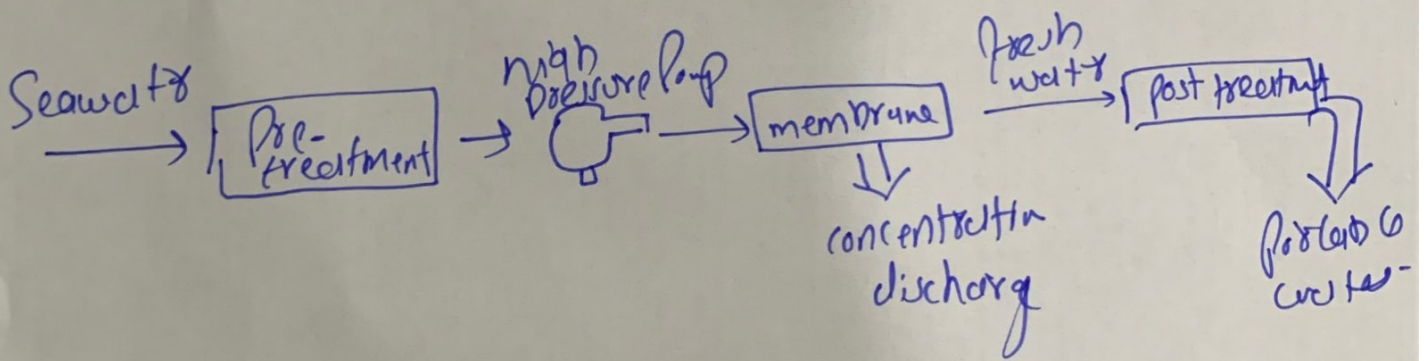 Seawatr
Pre-
treatment
high
pressure Pump
membrane
fresh
watr
post treatmt
concentratin
discharg
portable
water